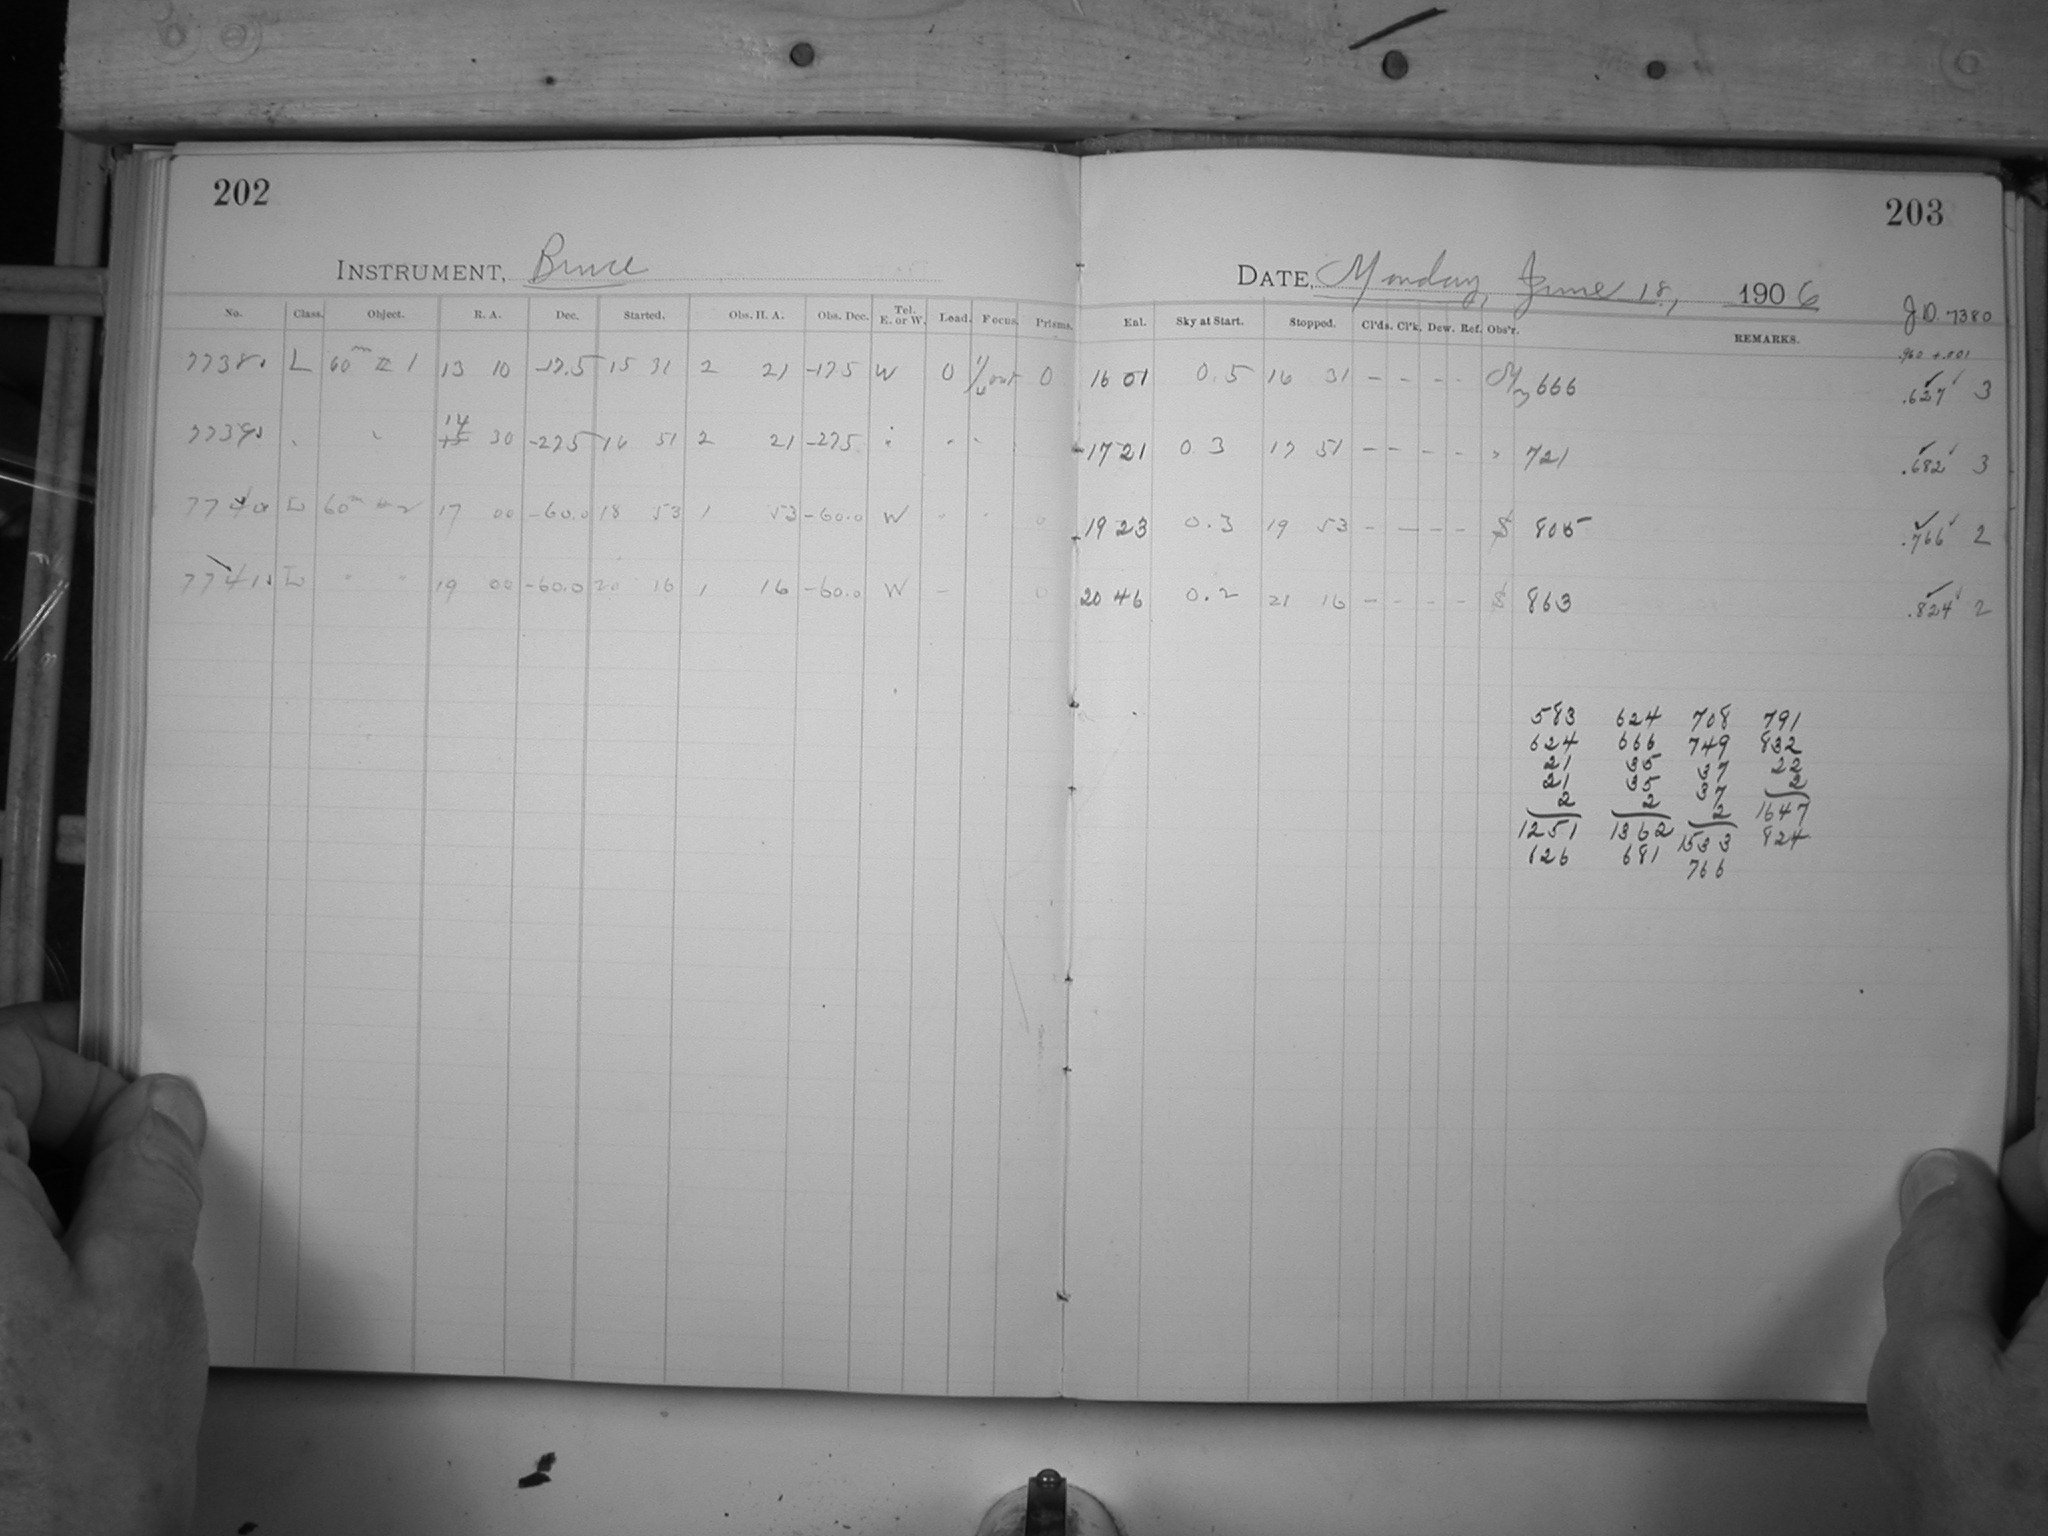 202
203
INSTRUMENT, Bruce
DATE, Monday, June 18, 1906
J.D. 7380
No. Class. Object. R. A. Dec. Started. Obs. H. A. Obs. Dec. Tel. E. or W. Load. Focus. Prisms. Enl. Sky at Start. Stopped. Cl'ds. Cl'k. Dew. Ref. Obs'r. REMARKS.
.960 + .001
7738 L 60m # 1 13 10 -17.5 15 31 2 21 -17.5 W 0 out 0 16 01 0.5 16 31 - - - - 666 .627 3
7739 " " 14 15 30 -27.5 16 51 2 21 -27.5 " " " 17 21 0.3 17 51 - - - - " 721 .682 3
7740 L 60m # 2 17 00 -60.0 18 53 1 53 -60.0 W " " 0 19 23 0.3 19 53 - - - - 805 .766 2
7741 L " " 19 00 -60.0 20 16 1 16 -60.0 W - 0 20 46 0.2 21 16 - - - - 863 .824 2
583 624 708 791
624 666 749 832
21 35 37 22
21 35 37 2
2 2 2 1647
1251 1362 1533 824
626 681 766